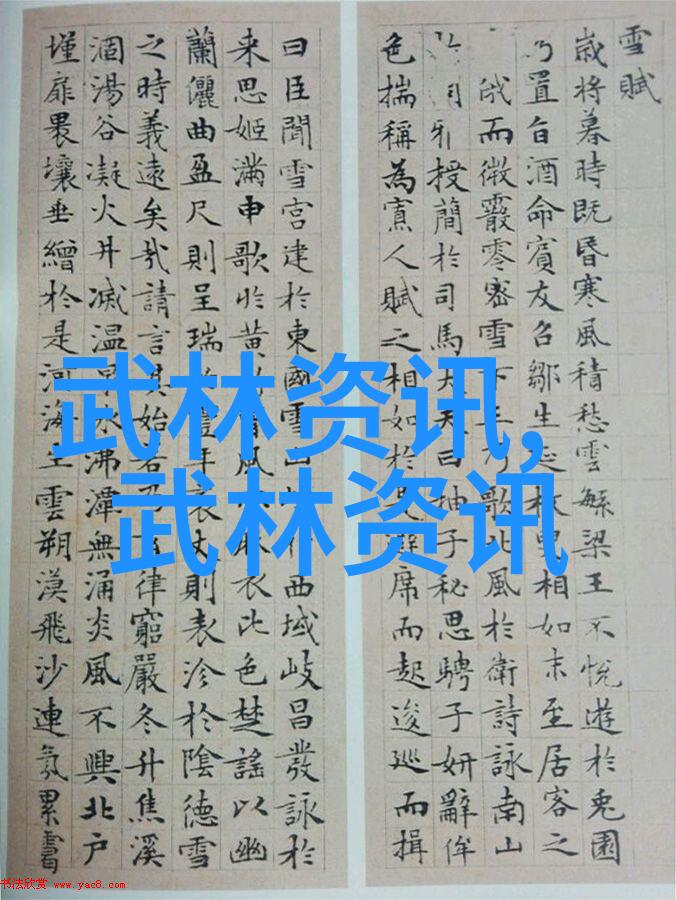 雪賦
歲將暮時既昏寒風積愁雲繁梁王不悅遊於兎園
乃置旨酒命賓友召鄒生延枚叟相如末至居客之
俄而微霰零密雪下王乃歌北風於衛詩詠南山
授簡於司馬大夫曰抽子秘思騁子妍辭侔
色揣稱為寡人賦之相如於是避席而起逡巡而揖
曰臣聞雪宮建於東國雪山 西域岐昌發詠於
来思姬滿申歌於黄 風 麻衣比色楚謠以幽
蘭儷曲盈尺則呈瑞 豐年袤丈則表沴於陰德雪
之時義遠矣哉請言其始若乃 律窮嚴冬升焦溪
涸湯谷凝火井滅温泉冰沸潭無涌炎風不興北户
墐扉裸壤垂繒於是河海生雲朔漠飛沙連氛累靄
武林资讯,
武林资讯
书法欣赏 www.yac8.com